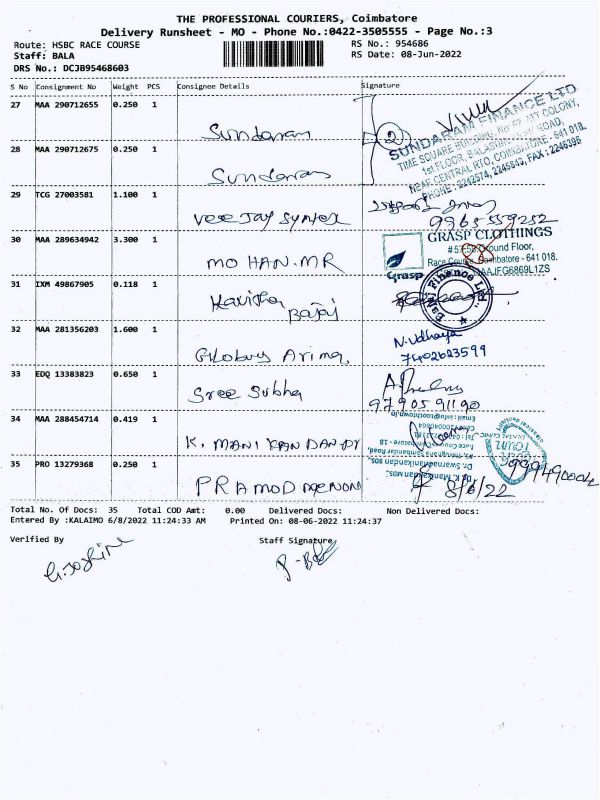 THE PROFESSIONAL COURIERS, Coimbatore
Delivery Runsheet - MO - Phone No.:0422-3505555 - Page No.:3
Route: HSBC RACE COURSE RS No.: 954686
Staff: BALA RS Date: 08-Jun-2022
DRS No.: DCJB95468603
S No Consignment No Weight PCS Consignee Details Signature
27 MAA 290712655 0.250 1 Sundaram
28 MAA 290712675 0.250 1 Sundaram
SUNDARAM FINANCE LTD
TIME SQUARE BUILDING, COLONY,
1st FLOOR, ROAD,
NEAR CENTRAL RTO, COIMBATORE - 641 018.
PHONE : 2242574, 2245843, FAX : 2246396
29 TCG 27003581 1.100 1 Veejay Syntex
9965559252
30 MAA 289634942 3.300 1 MOHAN.MR
GRASP CLOTHINGS
Ground Floor,
Race Course, Coimbatore - 641 018.
Grasp
31 IXM 49867905 0.118 1 Kavitha
Bajaj
Bajaj Finance Ltd
32 MAA 281356203 1.600 1 Globus Arima
N. Udhaya
7402623599
33 EDQ 13383823 0.650 1 Sree Subha
9790591190
34 MAA 288454714 0.419 1 K. MANIKANDAN DR
Email : info@toothtown.in
Race Course, Coimbatore - 18
Dr. Swarna Manikandan BDS
Dr. K. Manikandan MDS.
TOOTH
TOWN
DENTAL CLINIC
35 PRO 13279368 0.250 1 PRAMOD MENON
8/6/22
9994490004
Total No. Of Docs: 35 Total COD Amt: 0.00 Delivered Docs: Non Delivered Docs:
Entered By :KALAIMO 6/8/2022 11:24:33 AM Printed On: 08-06-2022 11:24:37
Verified By Staff Signature